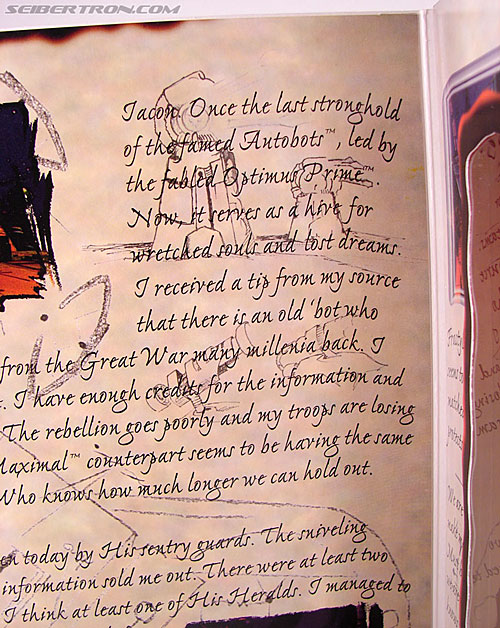 SEIBERTRON.COM
Iacon. Once the last stronghold
of the famed Autobots™, led by
the fabled Optimus Prime™.
Now, it serves as a hive for
wretched souls and lost dreams.
I received a tip from my source
that there is an old 'bot who
from the Great War many millenia back. I
. I have enough credits for the information and
The rebellion goes poorly and my troops are losing
Maximal™ counterpart seems to be having the same
Who knows how much longer we can hold out.
today by His sentry guards. The sniveling
information sold me out. There were at least two
I think at least one of His Heralds. I managed to